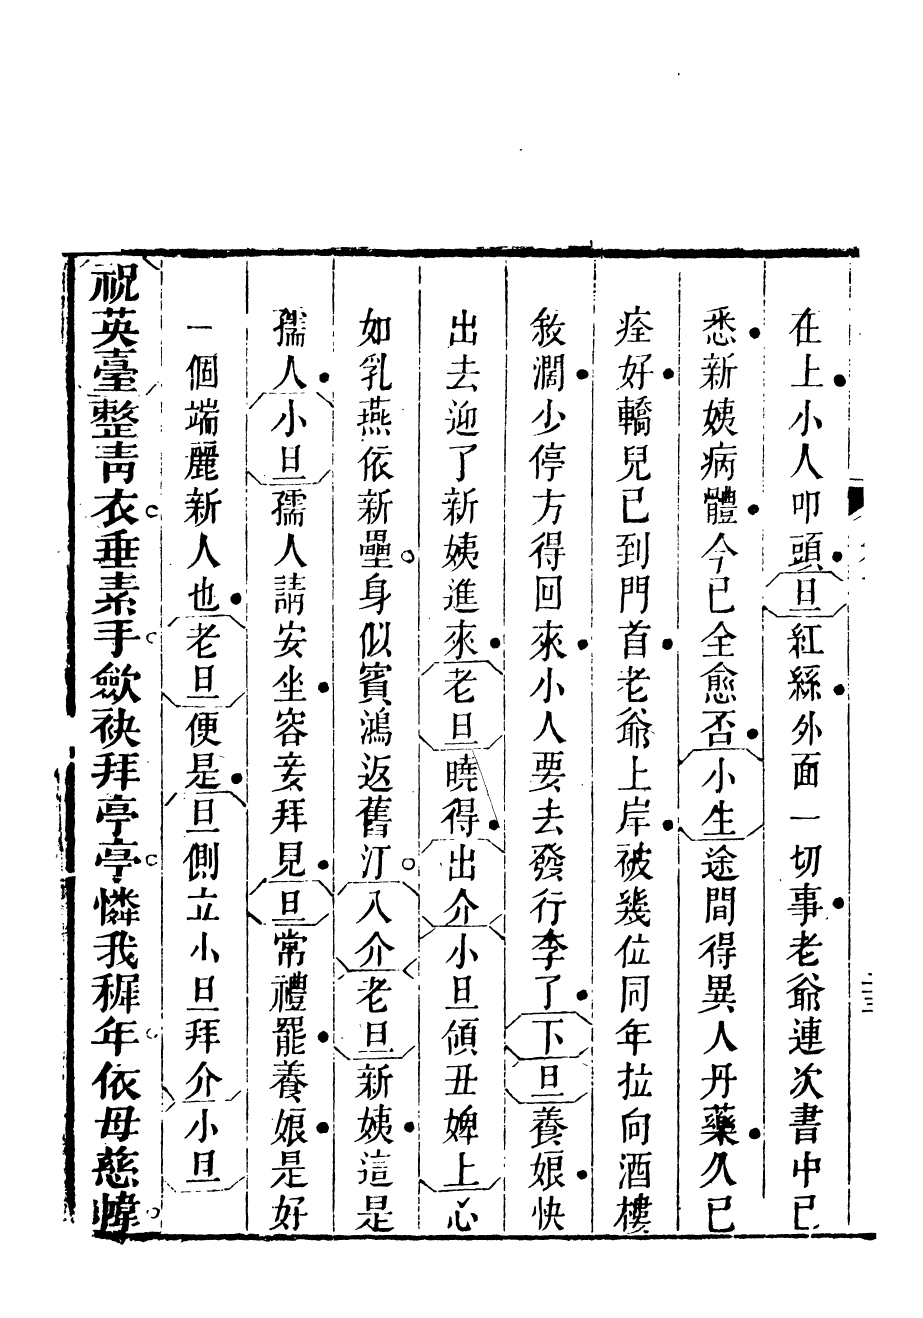 在上小人叩頭旦紅絲外面一切事老爺連次書中已
悉新姨病體今已全愈否小生途間得異人丹藥久已
痊好轎兒已到門首老爺上岸被幾位同年拉向酒樓
敘濶少停方得回來小人要去發行李了下旦養娘快
出去迎了新姨進來老旦曉得出介小旦領丑婢上心
如乳燕依新壘身似賓鴻返舊汀入介老旦新姨這是
孺人小旦孺人請安坐容妾拜見旦常禮罷養娘是好
一個端麗新人也老旦便是旦側立小旦拜介小旦
祝英臺整靑衣垂素手歛袂拜亭亭憐我穉年依母慈幃
二三